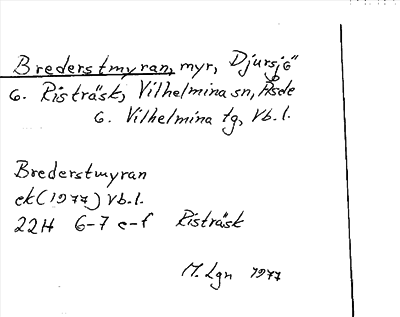 Brederstmyran, myr, Djursjö"
G. Risträsk, Vilhelmina sn, Åsele
G. Vilhelmina tg, Vb.l.
Brederstmyran
ek (1977) Vb.l.
22H 6-7 e-f Risträsk
M. Lgn 1977